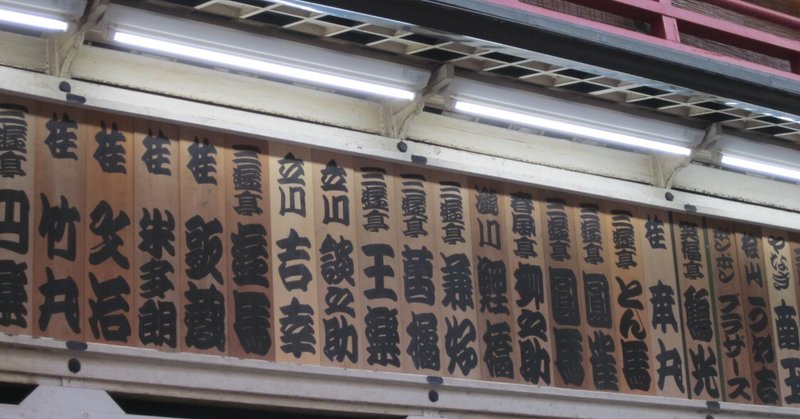 三遊亭 円楽
桂 竹丸
桂 文治
桂 米多朗
桂 歌蔵
三遊亭 遊馬
立川 吉幸
立川 談之助
三遊亭 王楽
三遊亭 萬橘
三遊亭 兼好
瀧川 鯉橋
春風亭 柳之助
三遊亭 圓馬
三遊亭 圓雀
三遊亭 とん馬
桂 幸丸
笑福亭 鶴光
ボンボン ブラザース
桧山 うめ吉
やなぎ 南玉